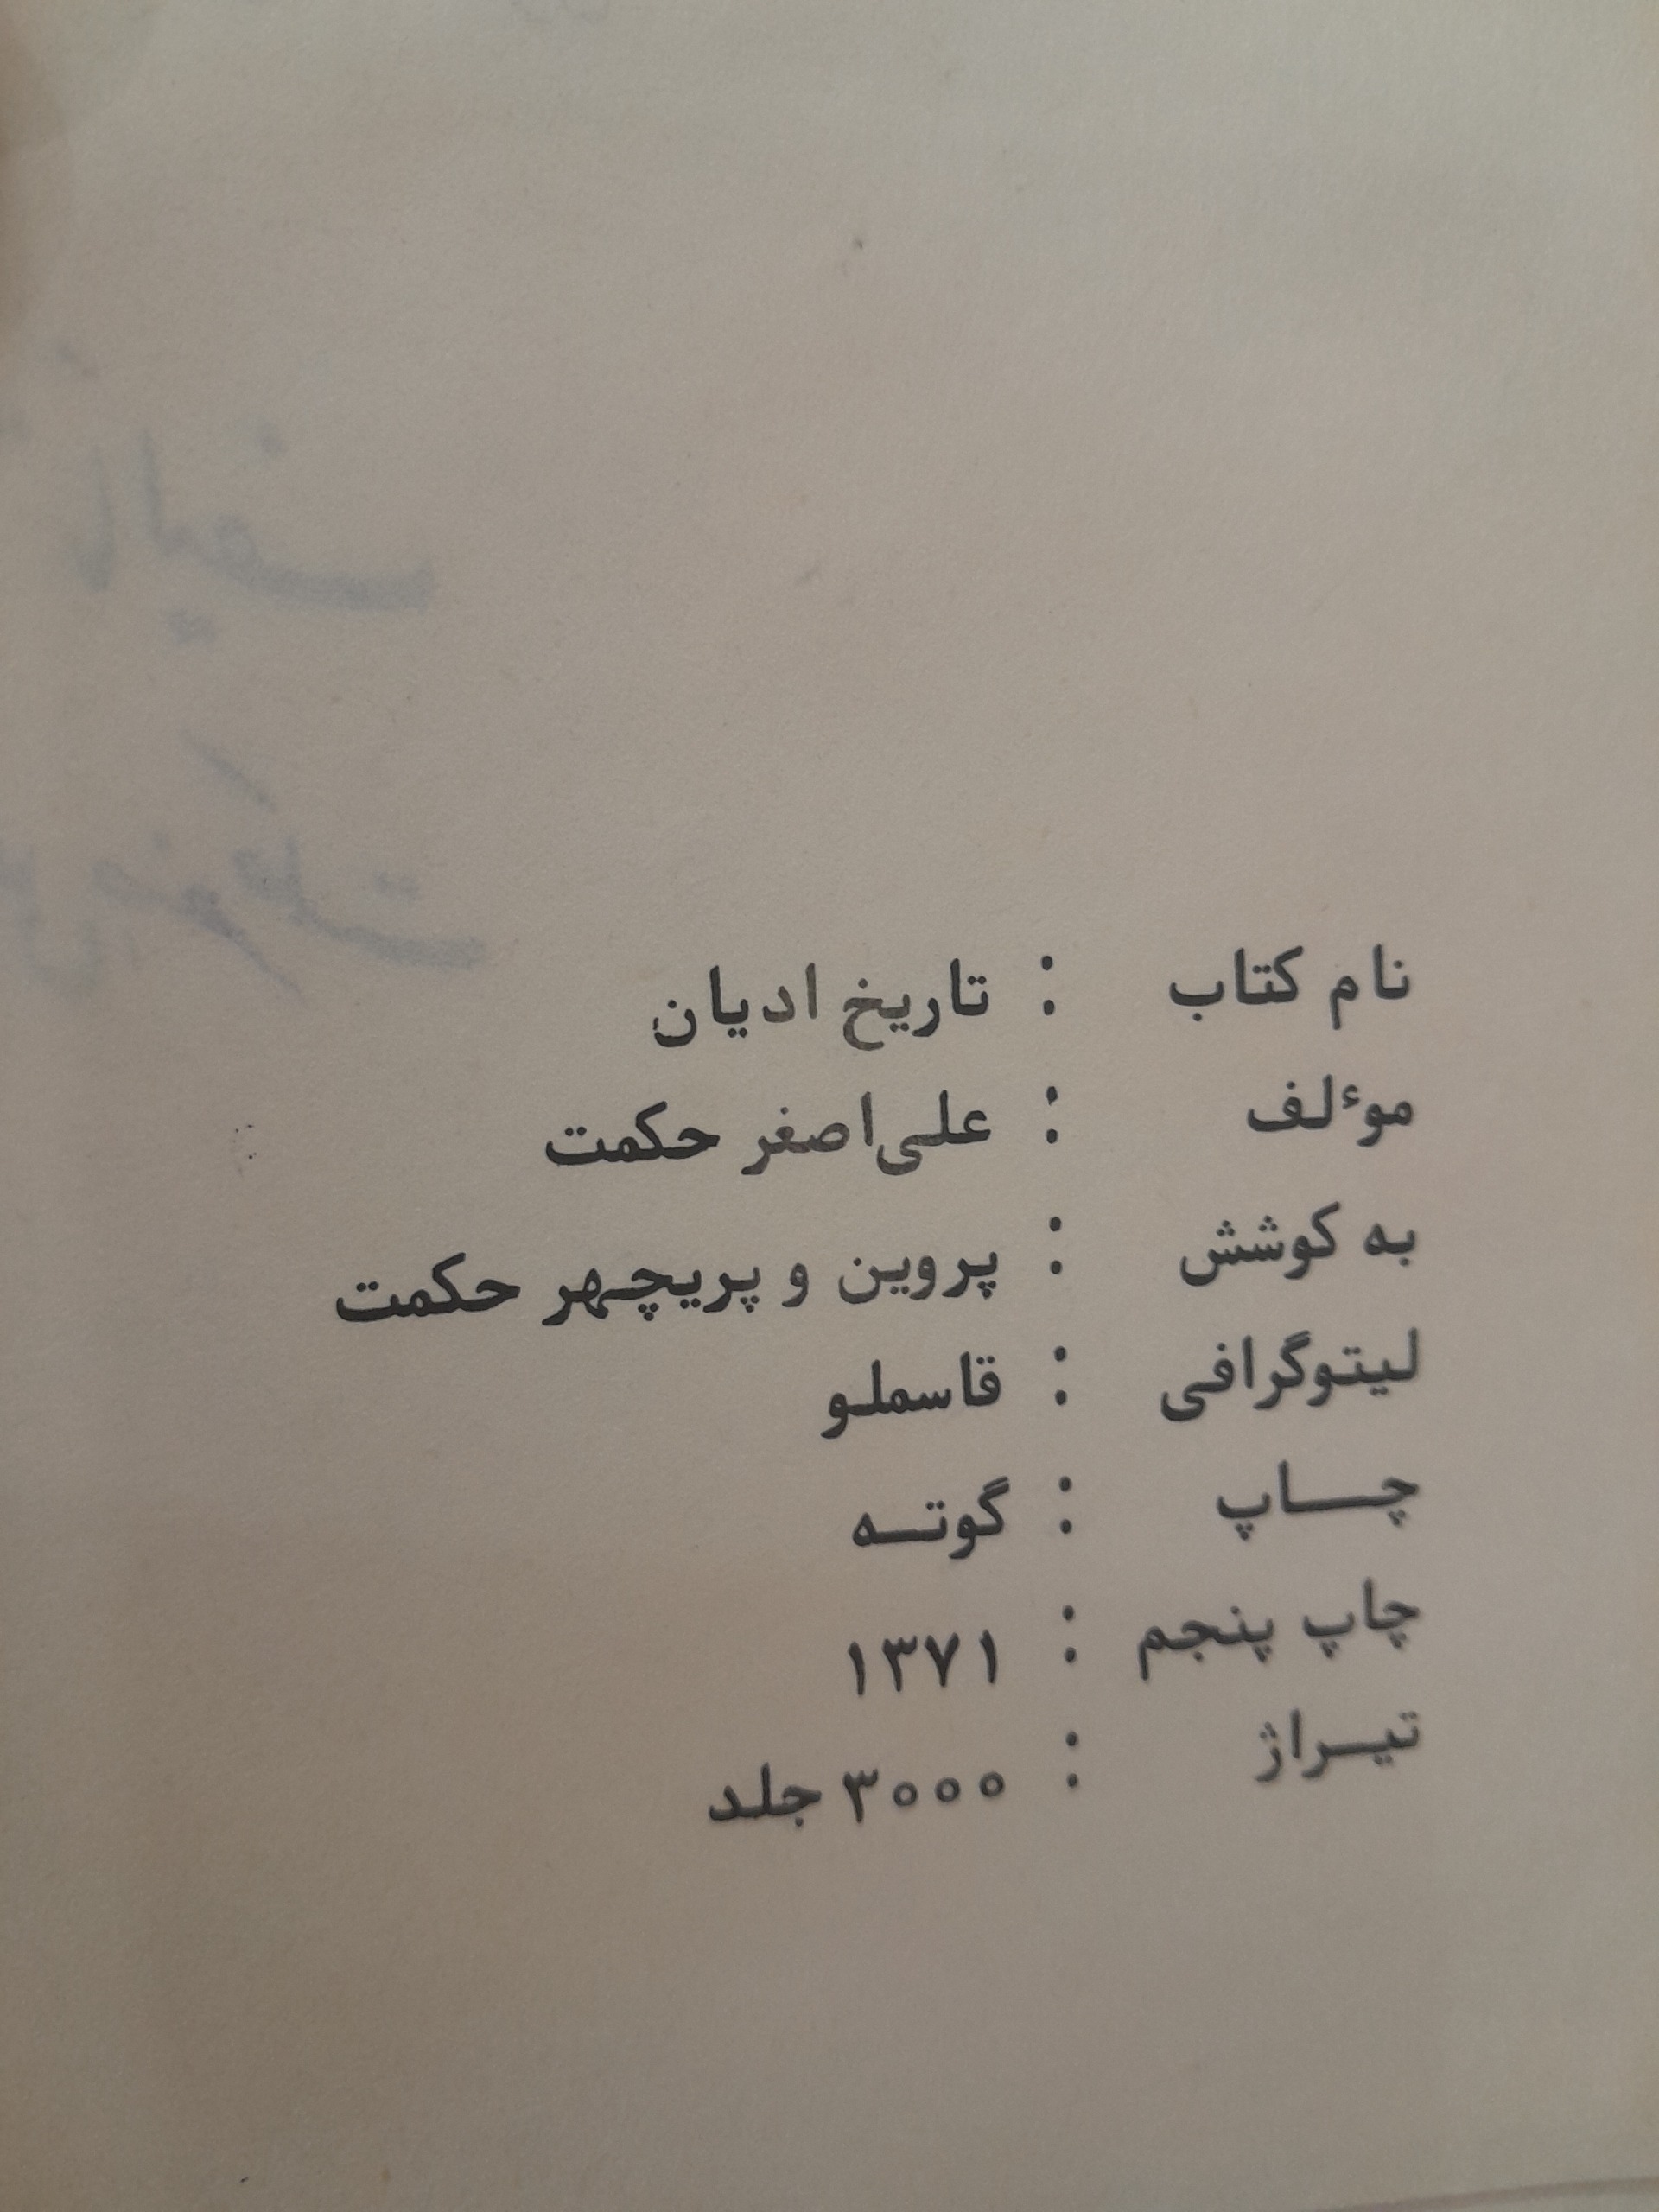 نام کتاب : تاریخ ادیان
موءلف : علی‌اصغر حکمت
به کوشش : پروین و پریچهر حکمت
لیتوگرافی : قاسملو
چاپ : گوته
چاپ پنجم : ۱۳۷۱
تیراژ : ۳۰۰۰ جلد